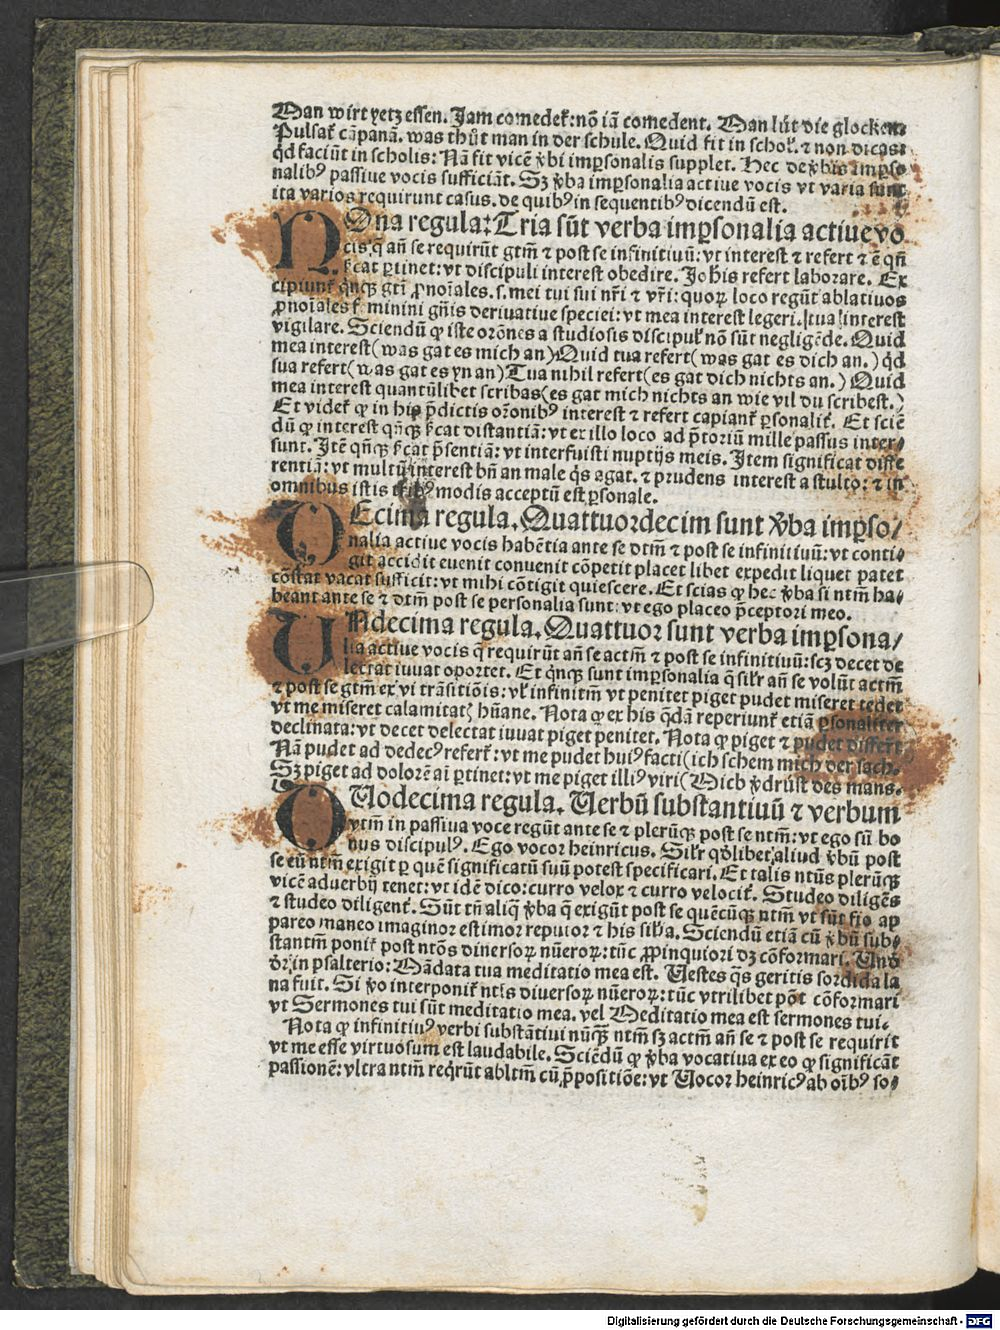 Man wirt yetz essen. Jam comedet᷑: nõ iã comedent. Man lüt die glocken
Pulsat᷑ cãpanã. was thůt man in der schule. Quid fit in schol᷑. ⁊ non dicas:
qd̃ faciũt in scholis: Nã fit vicẽ v̾bi imp̱sonalis supplet. Hec de v̾bis imp̱so
nalibꝰ passiue vocis sufficiãt. Sꝫ v̾ba imp̱sonalia actiue vocis vt varia sunt
ita varios requirunt casus. de quibꝰ in sequentibꝰ dicendũ est.
NOna regula: Tria sũt verba imp̱sonalia actiue vo
cis q̃ añ se requirũt gtm̃ ⁊ post se infinitiuũ: vt interest ⁊ refert ⁊ ẽ qñ
s᷑cat p̱tinet: vt discipuli interest obedire. Johis refert laborare. Ex
cipiunt᷑ q̃nqꝫ gtĩ ꝓnoĩales. s. mei tui sui nr̃i ⁊ vr̃i: quoꝝ loco regũt ablatiuos
ꝓnoĩales feminini gñis deriuatiue speciei: vt mea interest legeri. tua interest
vigilare. Sciendũ ꝙ iste orõnes a studiosis discipul᷑ nõ sũt negligẽde. Quid
mea interest (was gat es mich an) Quid tua refert (was gat es dich an.) qd̃
sua refert (was gat es yn an) Tua nihil refert (es gat dich nichts an.) Quid
mea interest quantũlibet scribas (es gat mich nichts an wie vil du scribest.)
Et videt᷑ ꝙ in his p̃dictis orõnibꝰ interest ⁊ refert capiant᷑ p̱sonalit᷑. Et sciẽ
dũ ꝙ interest qñqꝫ s᷑cat distantiã: vt ex illo loco ad p̃toriũ mille passus inter⸗
sunt. Jtẽ qñqꝫ s᷑cat p̃sentiã: vt interfuisti nuptijs meis. Jtem significat diffe
rentiã: vt multũ interest bñ an male q̃s agat. ⁊ prudens interest a stulto: ⁊ in
omnibus istis modis acceptũ est p̱sonale.
DEcima regula. Quattuordecim sunt v̾ba imp̱so⸗
nalia actiue vocis habẽtia ante se dtm̃ ⁊ post se infinitiuũ: vt conti⸗
git accidit euenit conuenit cõpetit placet libet expedit liquet patet
cõstat vacat sufficit: vt mihi cõtigit quiescere. Et scias ꝙ hec v̾ba si ntm̃ ha⸗
beant ante se ⁊ dtm̃ post se personalia sunt: vt ego placeo p̃ceptori meo.
UNdecima regula. Quattuor sunt verba imp̱sona⸗
lia actiue vocis q̃ requirũt añ se actm̃ ⁊ post se infinitiuũ: scꝫ decet de
lectat iuuat oportet. Et q̃nqꝫ sunt imp̱sonalia q̃ sil᷑r añ se volũt actm̃
⁊ post se gtm̃ ex vi trãsitiõis: vl᷑ infinitm̃ vt penitet piget pudet miseret tedet
vt me miseret calamitatꝭ hũane. Nota ꝙ ex his q̃dã reperiunt᷑ etiã p̱sonaliter
declinata: vt decet delectat iuuat piget penitet. Nota ꝙ piget ⁊ pudet differt
Nã pudet ad dedecꝰ refert᷑: vt me pudet huiꝰ facti (ich schem mich der sach.
Sꝫ piget ad dolorẽ aĩ p̱tinet: vt me piget illiꝰ viri (Mich v̾drüst des mans.
DUodecima regula. Uerbũ substantiuũ ⁊ verbum
vtm̃ in passiua voce regũt ante se ⁊ plerũqꝫ post se ntm̃: vt ego sũ bo
nus discipulꝰ. Ego vocor heinricus. Sil᷑r qd̾libet aliud v̾bũ post
se eũ ntm̃ exigit p̱ quẽ significatũ suũ potest specificari. Et talis ntũs plerũqꝫ
vicẽ aduerbij tenet: vt idẽ dico: curro velox ⁊ curro velocit᷑. Studeo diligẽs
⁊ studeo diligent᷑. Sũt tñ aliq̃ v̾ba q̃ exigũt post se quẽcũqꝫ ntm̃ vt sũt fio ap
pareo maneo imaginor estimor reputor ⁊ his sil᷑ia. Sciendũ etiã cũ v̾bũ sub⸗
stantm̃ ponit᷑ post ntõs diuersoꝝ nũeroꝝ: tũc ꝓpinquiori dꝫ cõformari. Und̾
dr̃ in psalterio: Mãdata tua meditatio mea est. Uestes q̃s geritis sordida la
na fuit. Si v̾o interponit᷑ ntĩs diuersoꝝ nũeroꝝ: tũc vtrilibet põt cõformari
vt Sermones tui sũt meditatio mea. vel Meditatio mea est sermones tui.
Nota ꝙ infinitiuꝰ verbi substãtiui nũqꝫ ntm̃ sꝫ actm̃ añ se ⁊ post se requirit
vt me esse virtuosum est laudabile. Sciẽdũ ꝙ v̾ba vocatiua ex eo ꝙ significãt
passionẽ: vltra ntm̃ req̃rũt abltm̃ cũ p̃positiõe: vt Uocor heinricꝰ ab oĩbꝰ so⸗
Digitalisierung gefördert durch die Deutsche Forschungsgemeinschaft - DFG